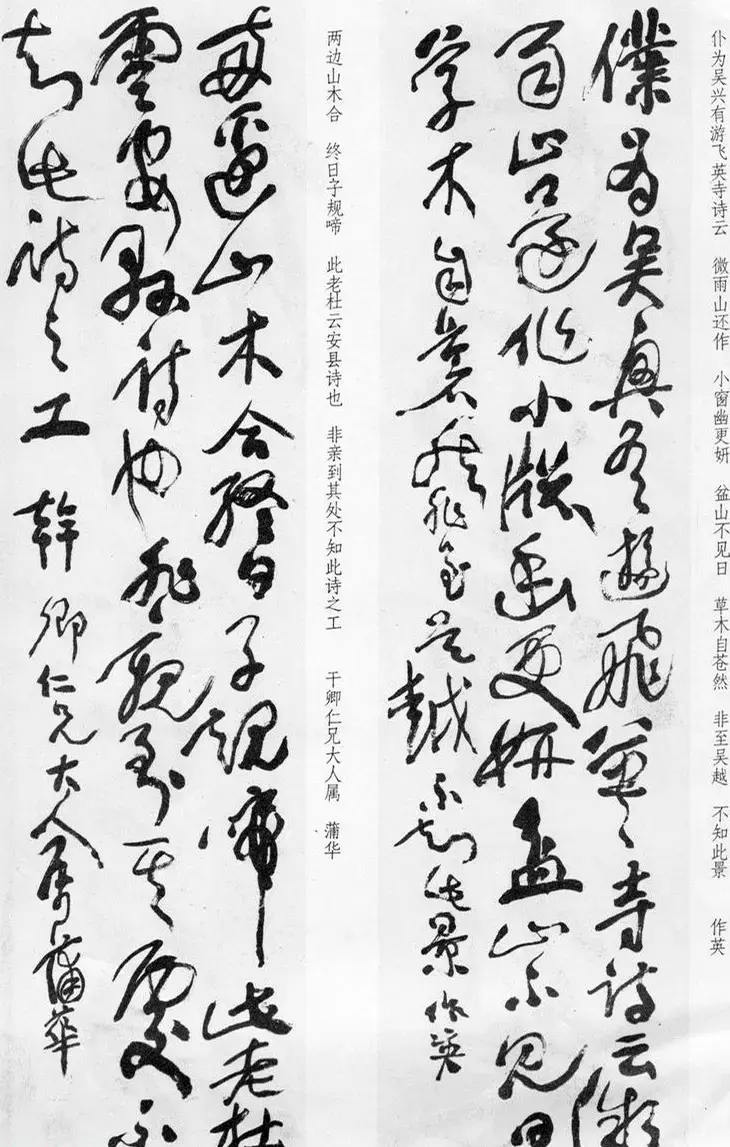 仆为吴兴有游飞英寺诗云　微雨山还作　小窗幽更妍　盆山不见日　草木自苍然　非至吴越　不知此景　作英
僕為吳興有遊飛英寺詩云微
雨山還作小牕幽更妍盆山不見日
草木自蒼然非至吳越不知此景作英
两边山木合　终日子规啼　此老杜云安县诗也　非亲到其处不知此诗之工　干卿仁兄大人属　蒲华
兩邊山木合終日子規啼此老杜
雲安縣詩也非親到其處不
知此詩之工 幹卿仁兄大人屬蒲華